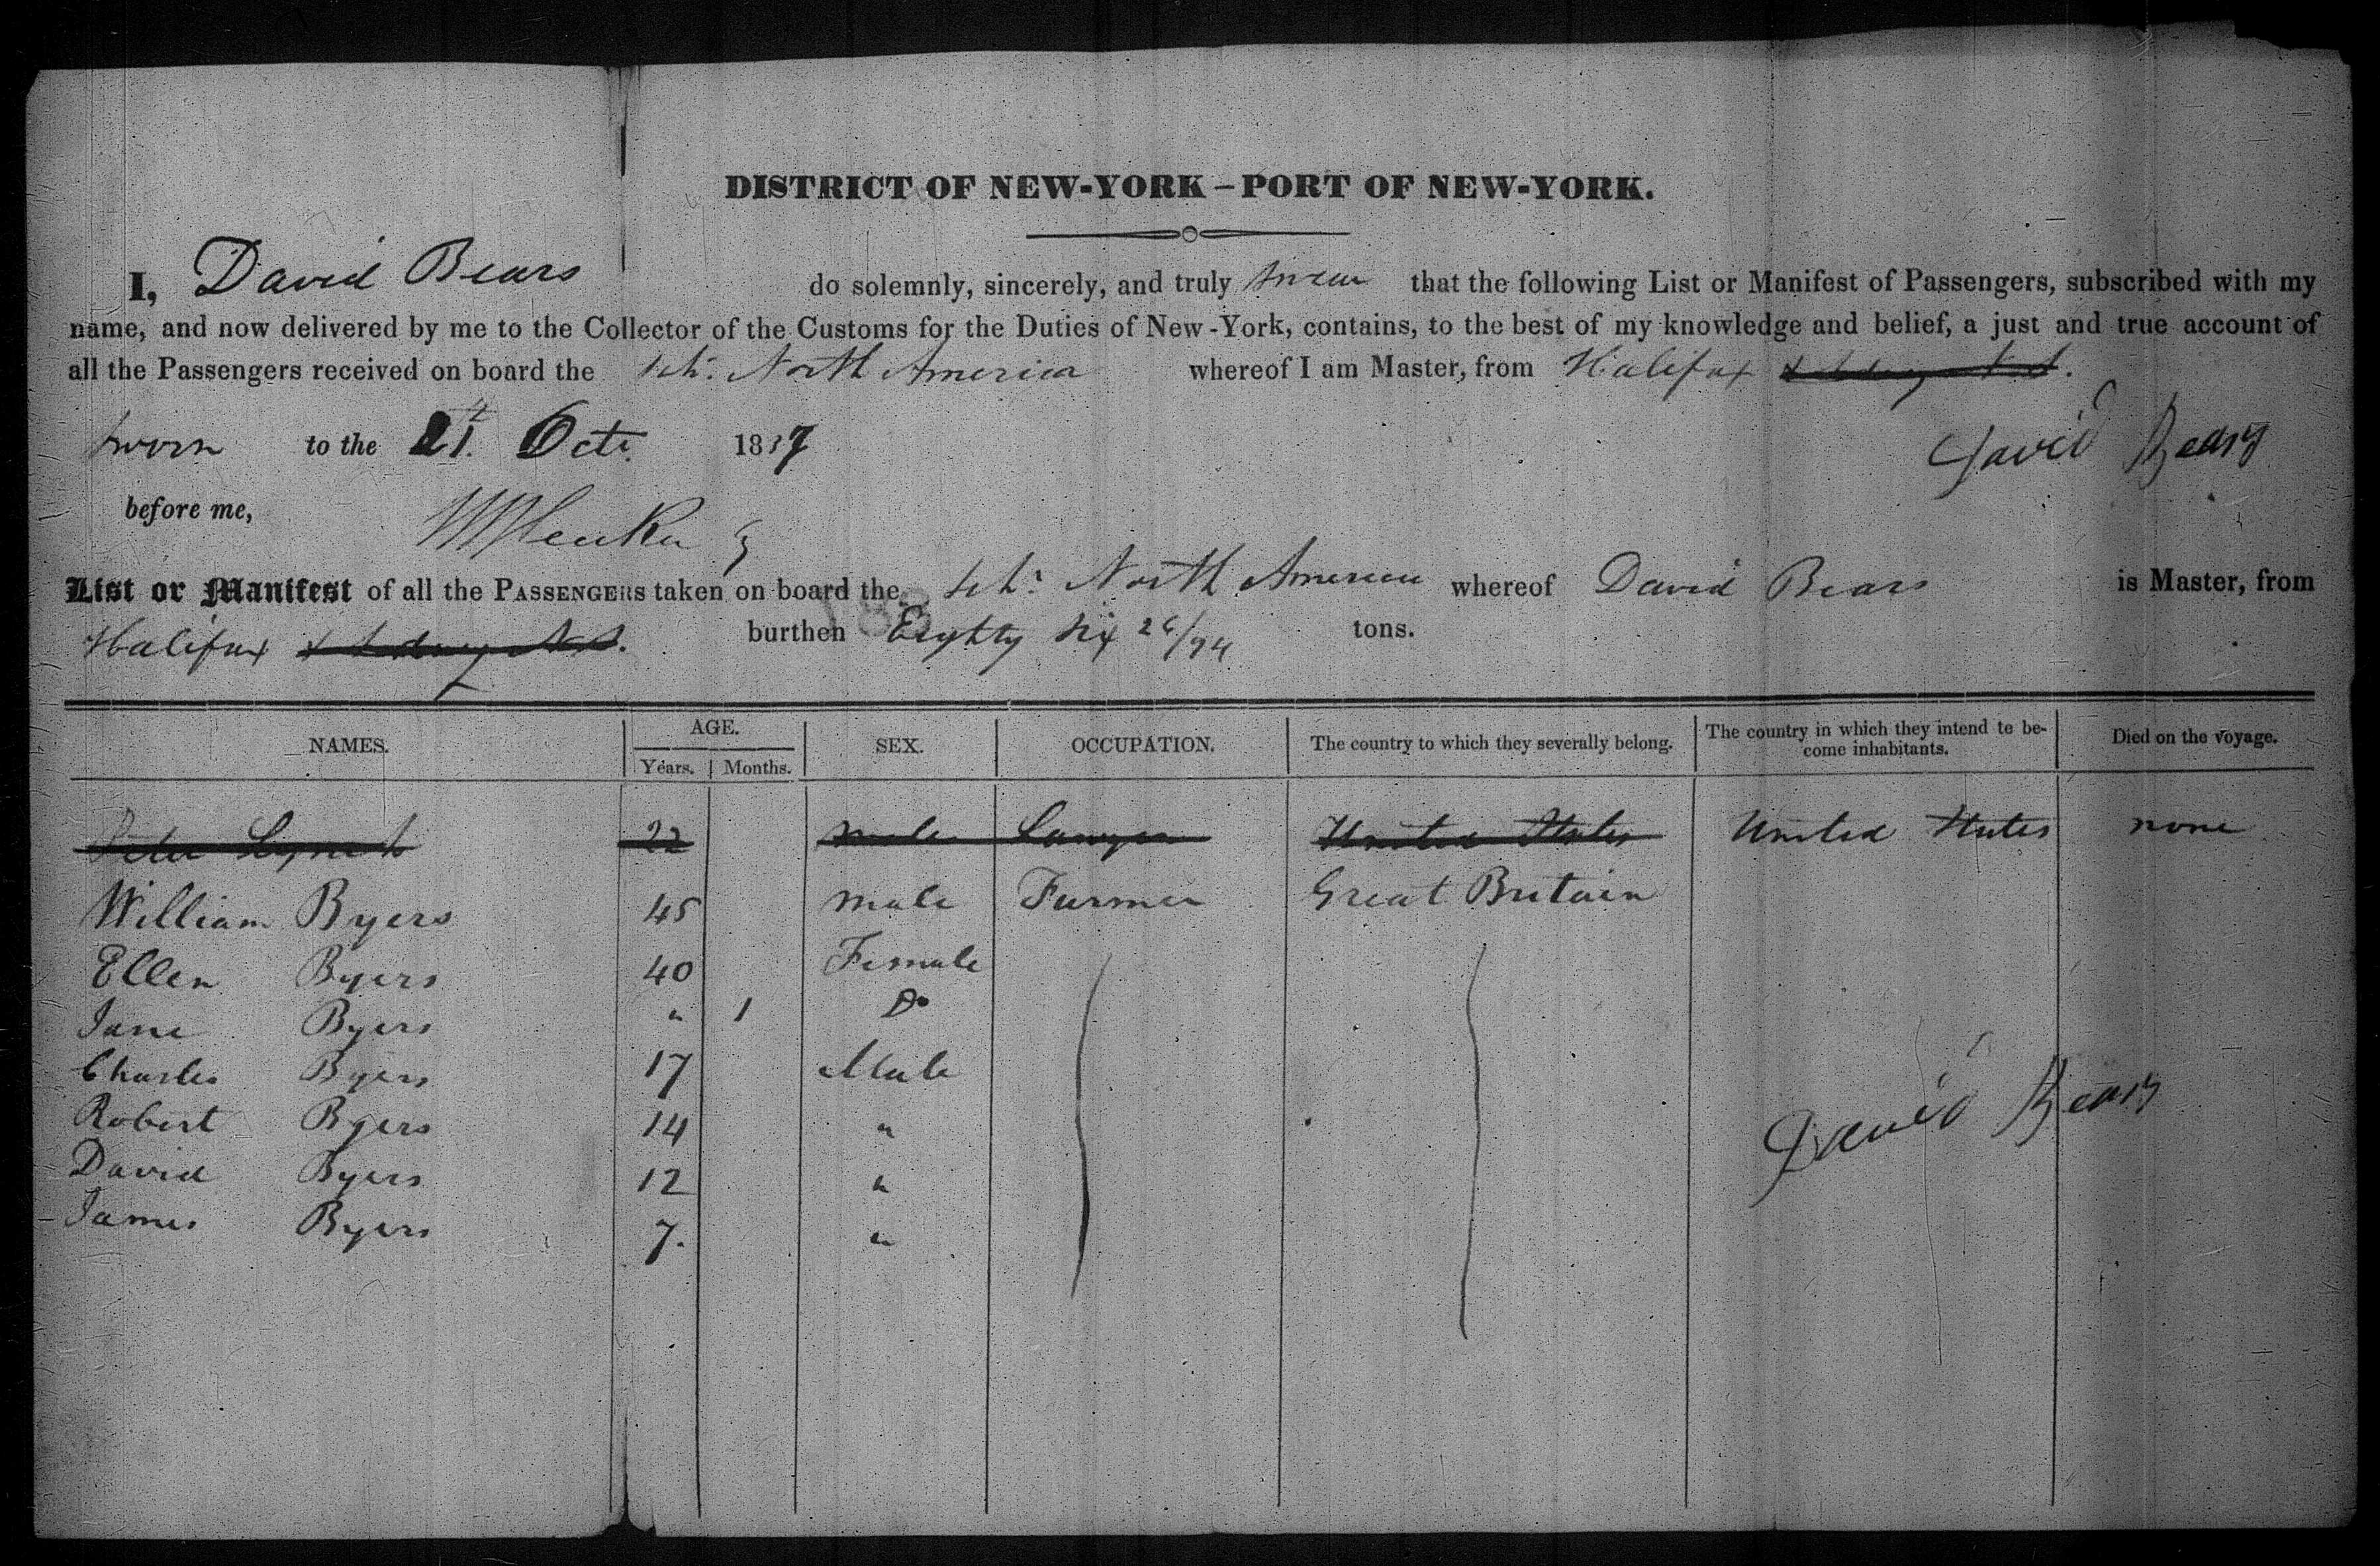 DISTRICT OF NEW-YORK – PORT OF NEW-YORK.
I, David Bears do solemnly, sincerely, and truly swear that the following List or Manifest of Passengers, subscribed with my
name, and now delivered by me to the Collector of the Customs for the Duties of New-York, contains, to the best of my knowledge and belief, a just and true account of
all the Passengers received on board the Schr. North America whereof I am Master, from Halifax & Sidney N.S.
sworn to the Octr. 1837 David Bears
before me,
List or Manifest of all the PASSENGERS taken on board the Schr. North America whereof David Bears is Master, from
Halifax & Sidney N.S. burthen Eighty Six 26/94 tons.
NAMES. AGE. SEX. OCCUPATION. The country to which they severally belong. The country in which they intend te be-come inhabitants. Died on the voyage.
Years. Months.
Peter Lynch 22 male Lawyer United States United States none
William Byers 45 male Farmer Great Britain
Ellen Byers 40 Female
Jane Byers " 1 Do
Charles Byers 17 Male
Robert Byers 14 "
David Byers 12 "
James Byers 7. "
David Bears